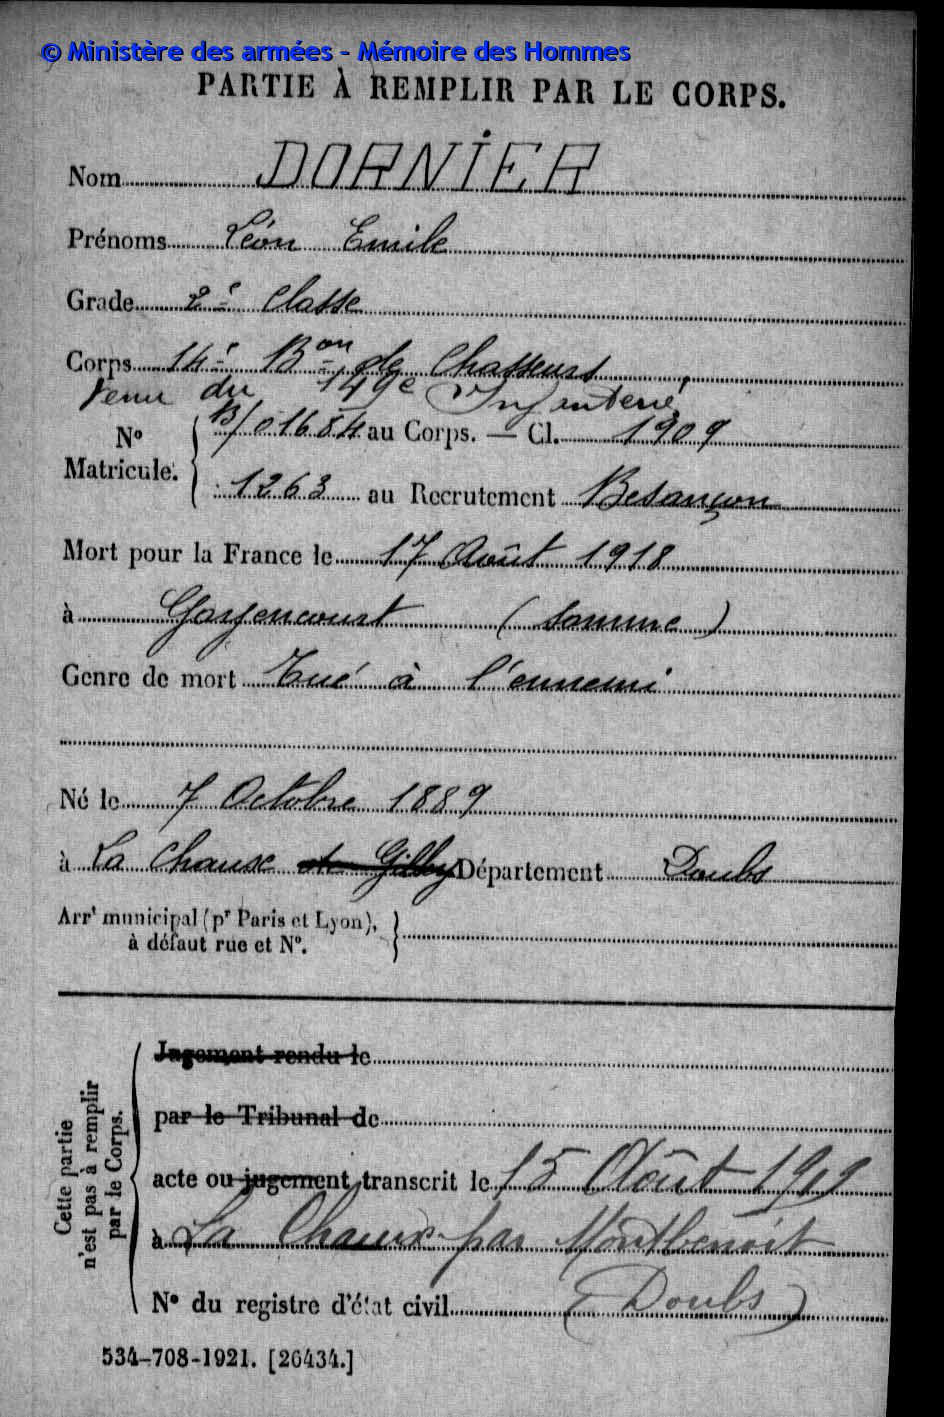 © Ministère des armées - Mémoire des Hommes
PARTIE À REMPLIR PAR LE CORPS.
Nom DORNIER
Prénoms Léon Emile
Grade 2e Classe
Corps 14e Bon de Chasseurs
Venu du 149e Infanterie
No Matricule. B/01684 au Corps. — Cl. 1909
1263 au Recrutement Besançon
Mort pour la France le 17 Août 1918
à Goyencourt (Somme)
Genre de mort Tué à l'ennemi
Né le 7 Octobre 1889
à La Chaux de Gilley Département Doubs
Arrt municipal (pr Paris et Lyon),
à défaut rue et No.
Cette partie n'est pas à remplir par le Corps.
Jugement rendu le
par le Tribunal de
acte ou jugement transcrit le 15 Août 1919
à La Chaux par Montbenoit
No du registre d'état civil (Doubs)
534-708-1921. [26434.]